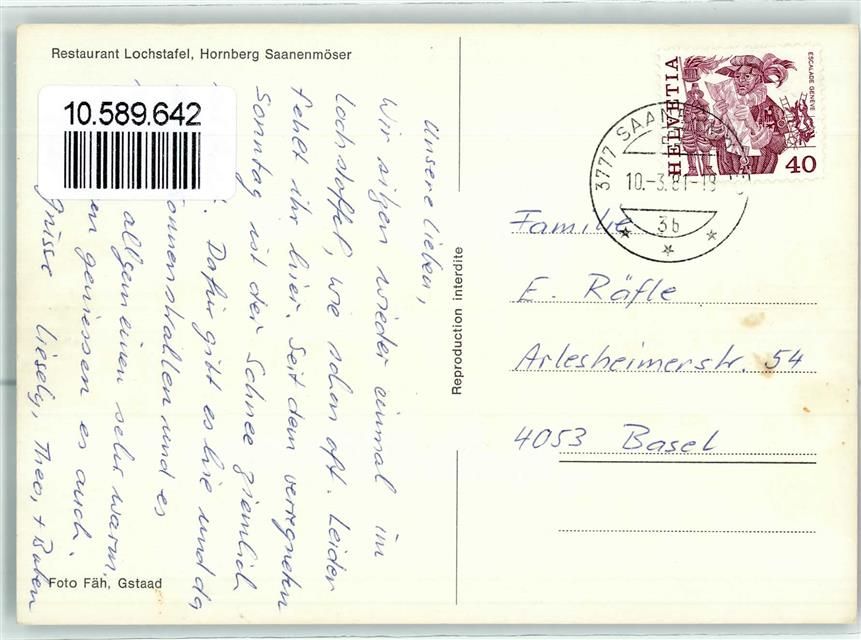 Restaurant Lochstafel, Hornberg Saanenmöser
10.589.642
Unsere Lieben,
Wir sitzen wieder einmal im
Lochstaffel, wie schon oft. Leider
fehlt ihr hier. Seit dem verregneten
Sonntag ist der Schnee ziemlich
Dafür gibt es hie und da
onnenstrahlen und es
allgemeinen sehr warm.
en geniessen es auch.
Grüsse Liesely, Theo, + Buben
Foto Fäh, Gstaad
Reproduction interdite
HELVETIA
ESCALADE GENÈVE
40
3777 SAANENMÖSER
10.-3.81-18
3b
Familie
E. Räfle
Arlesheimerstr. 54
4053 Basel